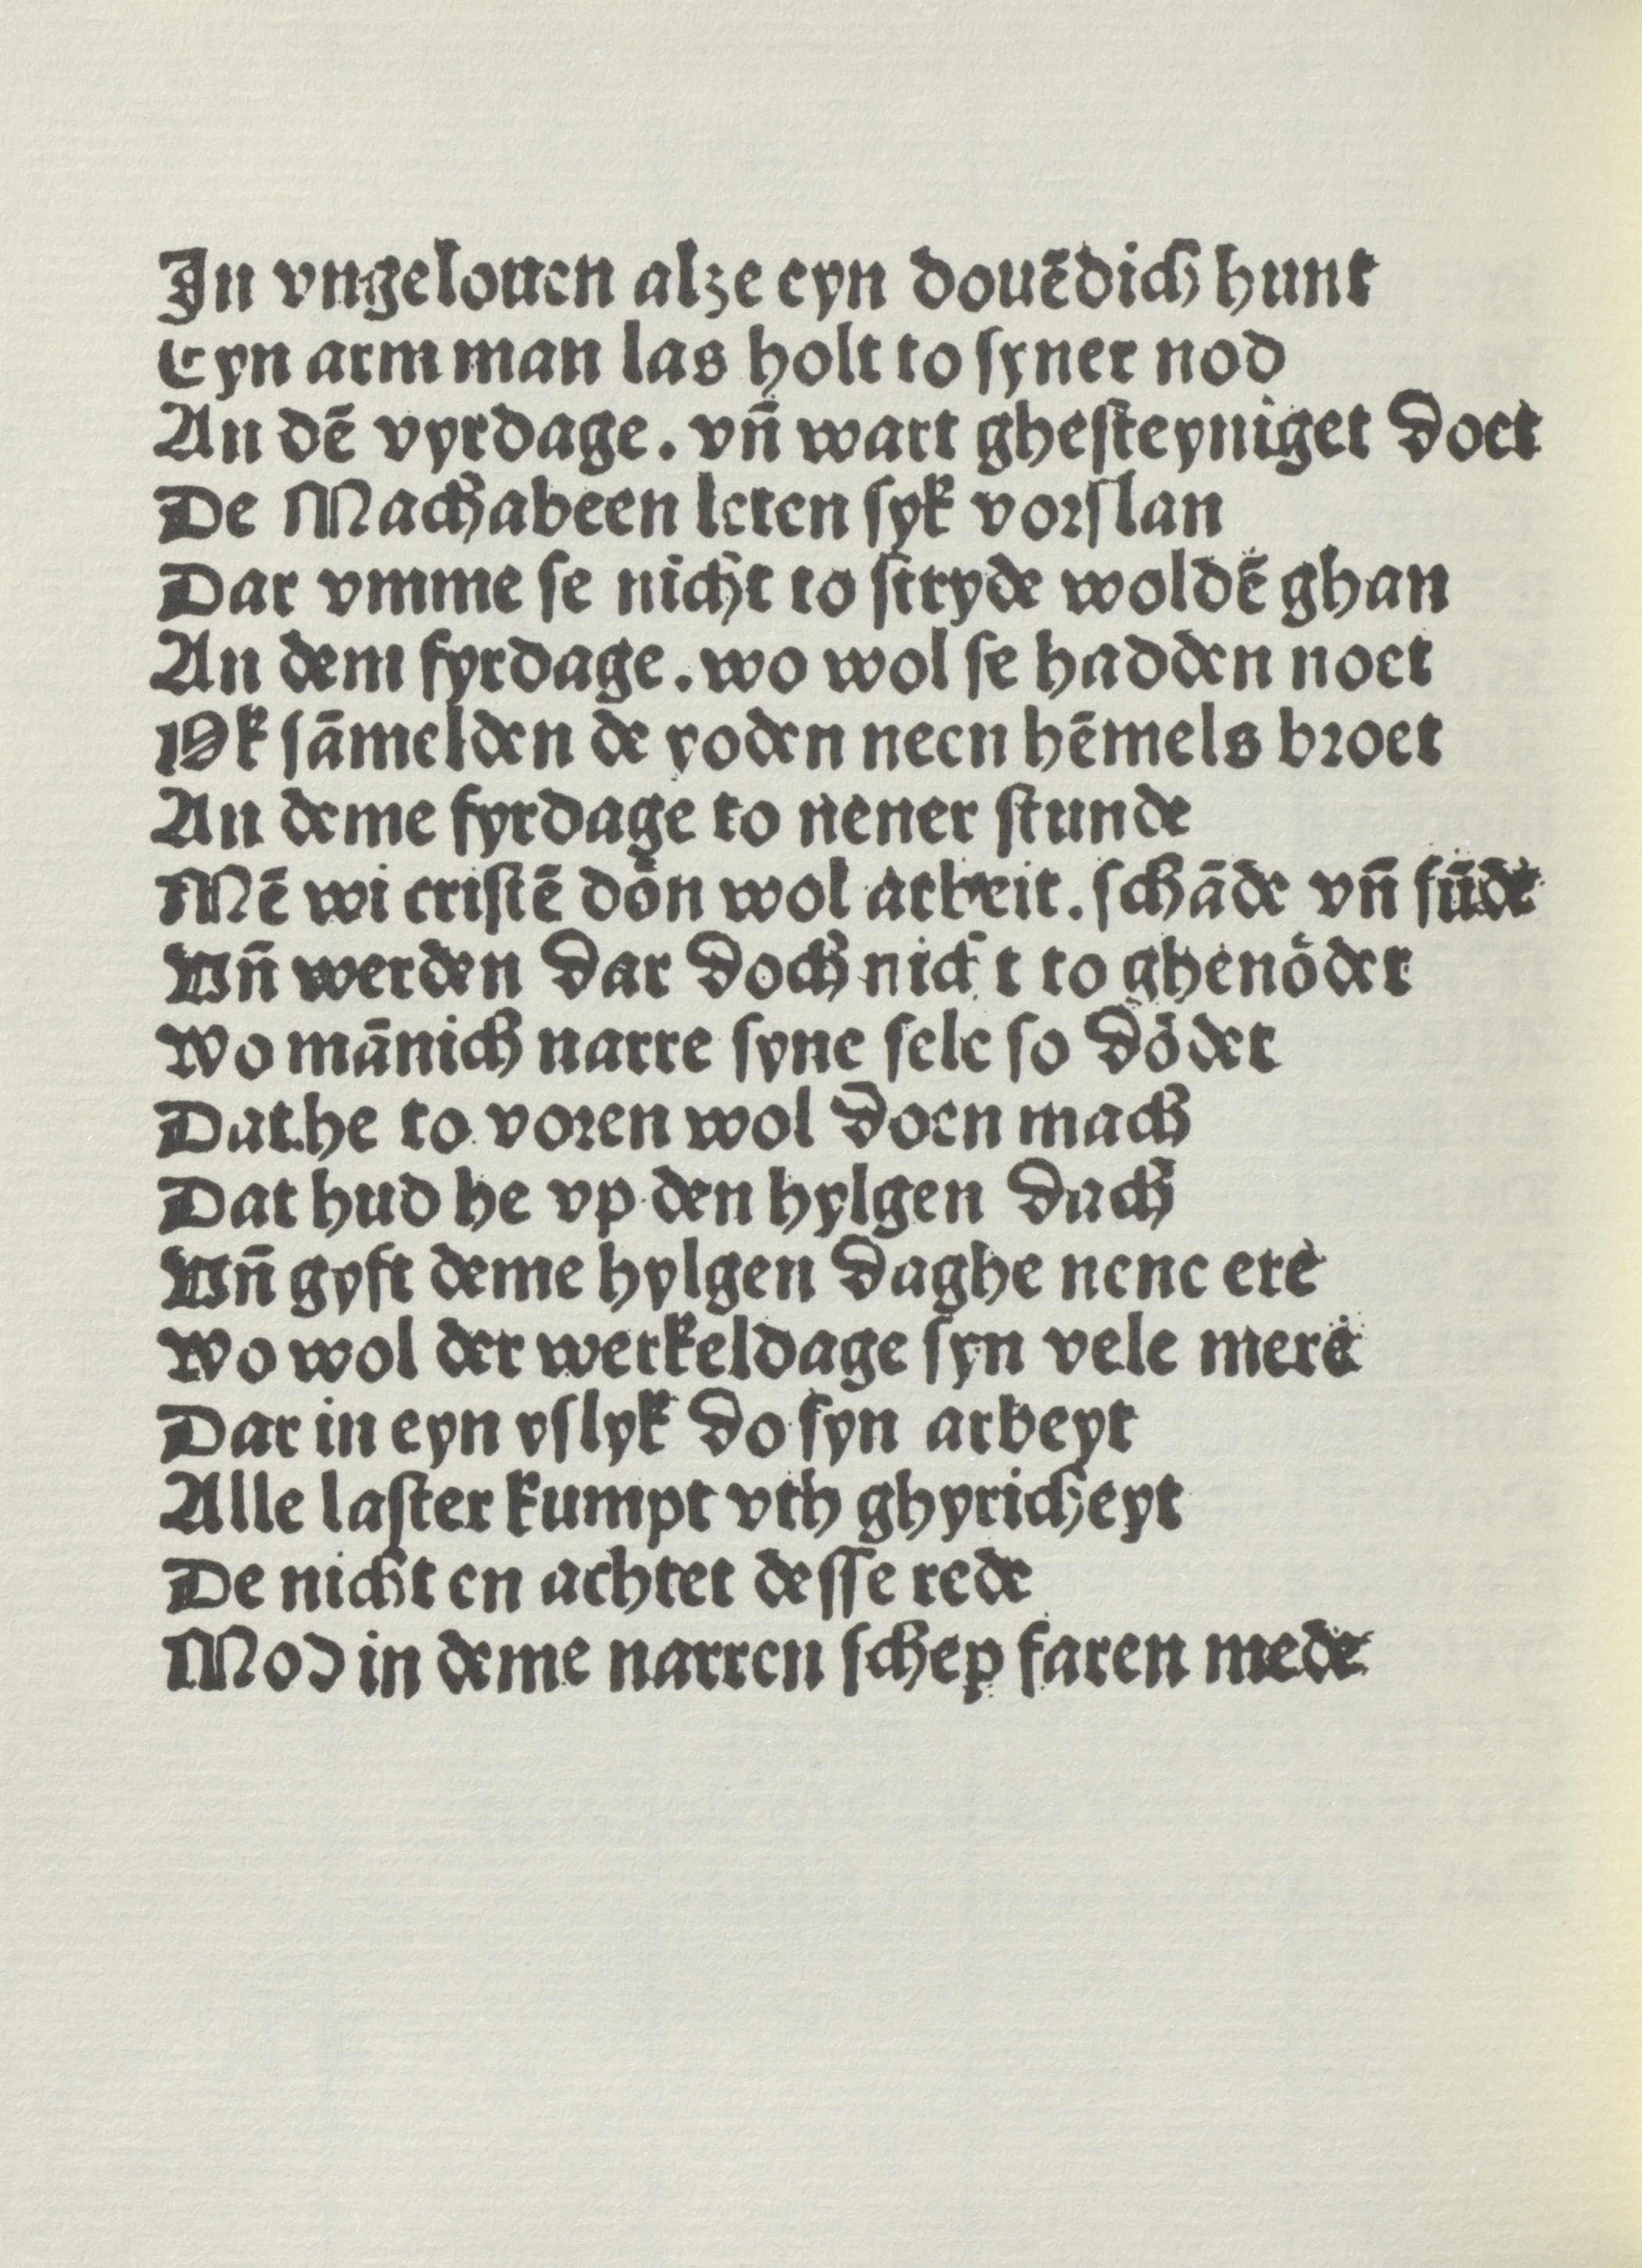 In vngelouen alze eyn douēdich hunt
Eyn arm man las holt to syner nod
An dē vyrdage. vn̄ wart ghesteyniget doet
De Machabeen leten syk vorslan
Dar vmme se nicht to stryde woldē ghan
An dem fyrdage. wo wol se hadden noet
Ok sāmelden de yoden neen hēmels broet
An deme fyrdage to nener stunde
Mē wi cristē dôn wol arbeit. schāde vn̄ sūde
Vn̄ werden dar doch nicht to ghenödet
Wo mānich narre syne sele so dödet
Dat he to voren wol doen mach
Dat hud he vp den hylgen dach
Vn̄ gyft deme hylgen daghe nene ere
Wo wol der werkeldage syn vele mere
Dar in eyn yslyk do syn arbeyt
Alle laster kumpt vth ghyricheyt
De nicht en achtet desse rede
Mod in deme narren schep faren mede